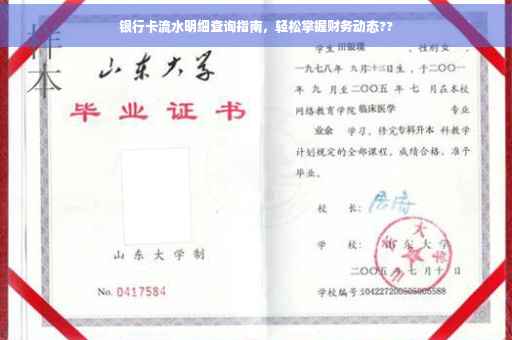 银行卡流水明细查询指南，轻松掌握财务动态??
样本
山东大学
毕业证书
山东大学制
No. 0417584
学生 田银瑞 ，性别女 ，
一九七八年 九月十三日生，于二〇〇一
年 九 月至二〇〇五 年 七 月在本校
网络教育学院 临床医学 专业
业余 学习，修完专科升本 科教学
计划规定的全部课程，成绩合格，准予
毕业。
校 长：
学 校：山东大学
二〇〇五年七月十日
学校编号：104227200505005588